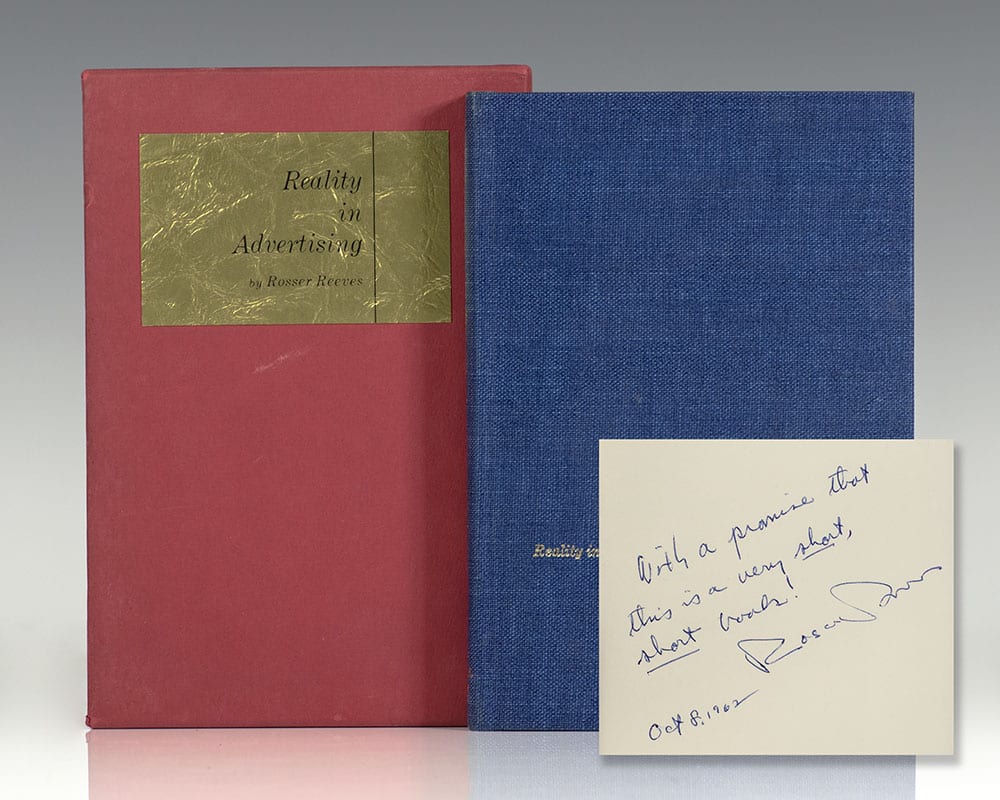 Reality
in
Advertising
by Rosser Reeves
Reality in
With a promise that
this is a very short,
short book!
Rosser Reeves
Oct 8, 1962